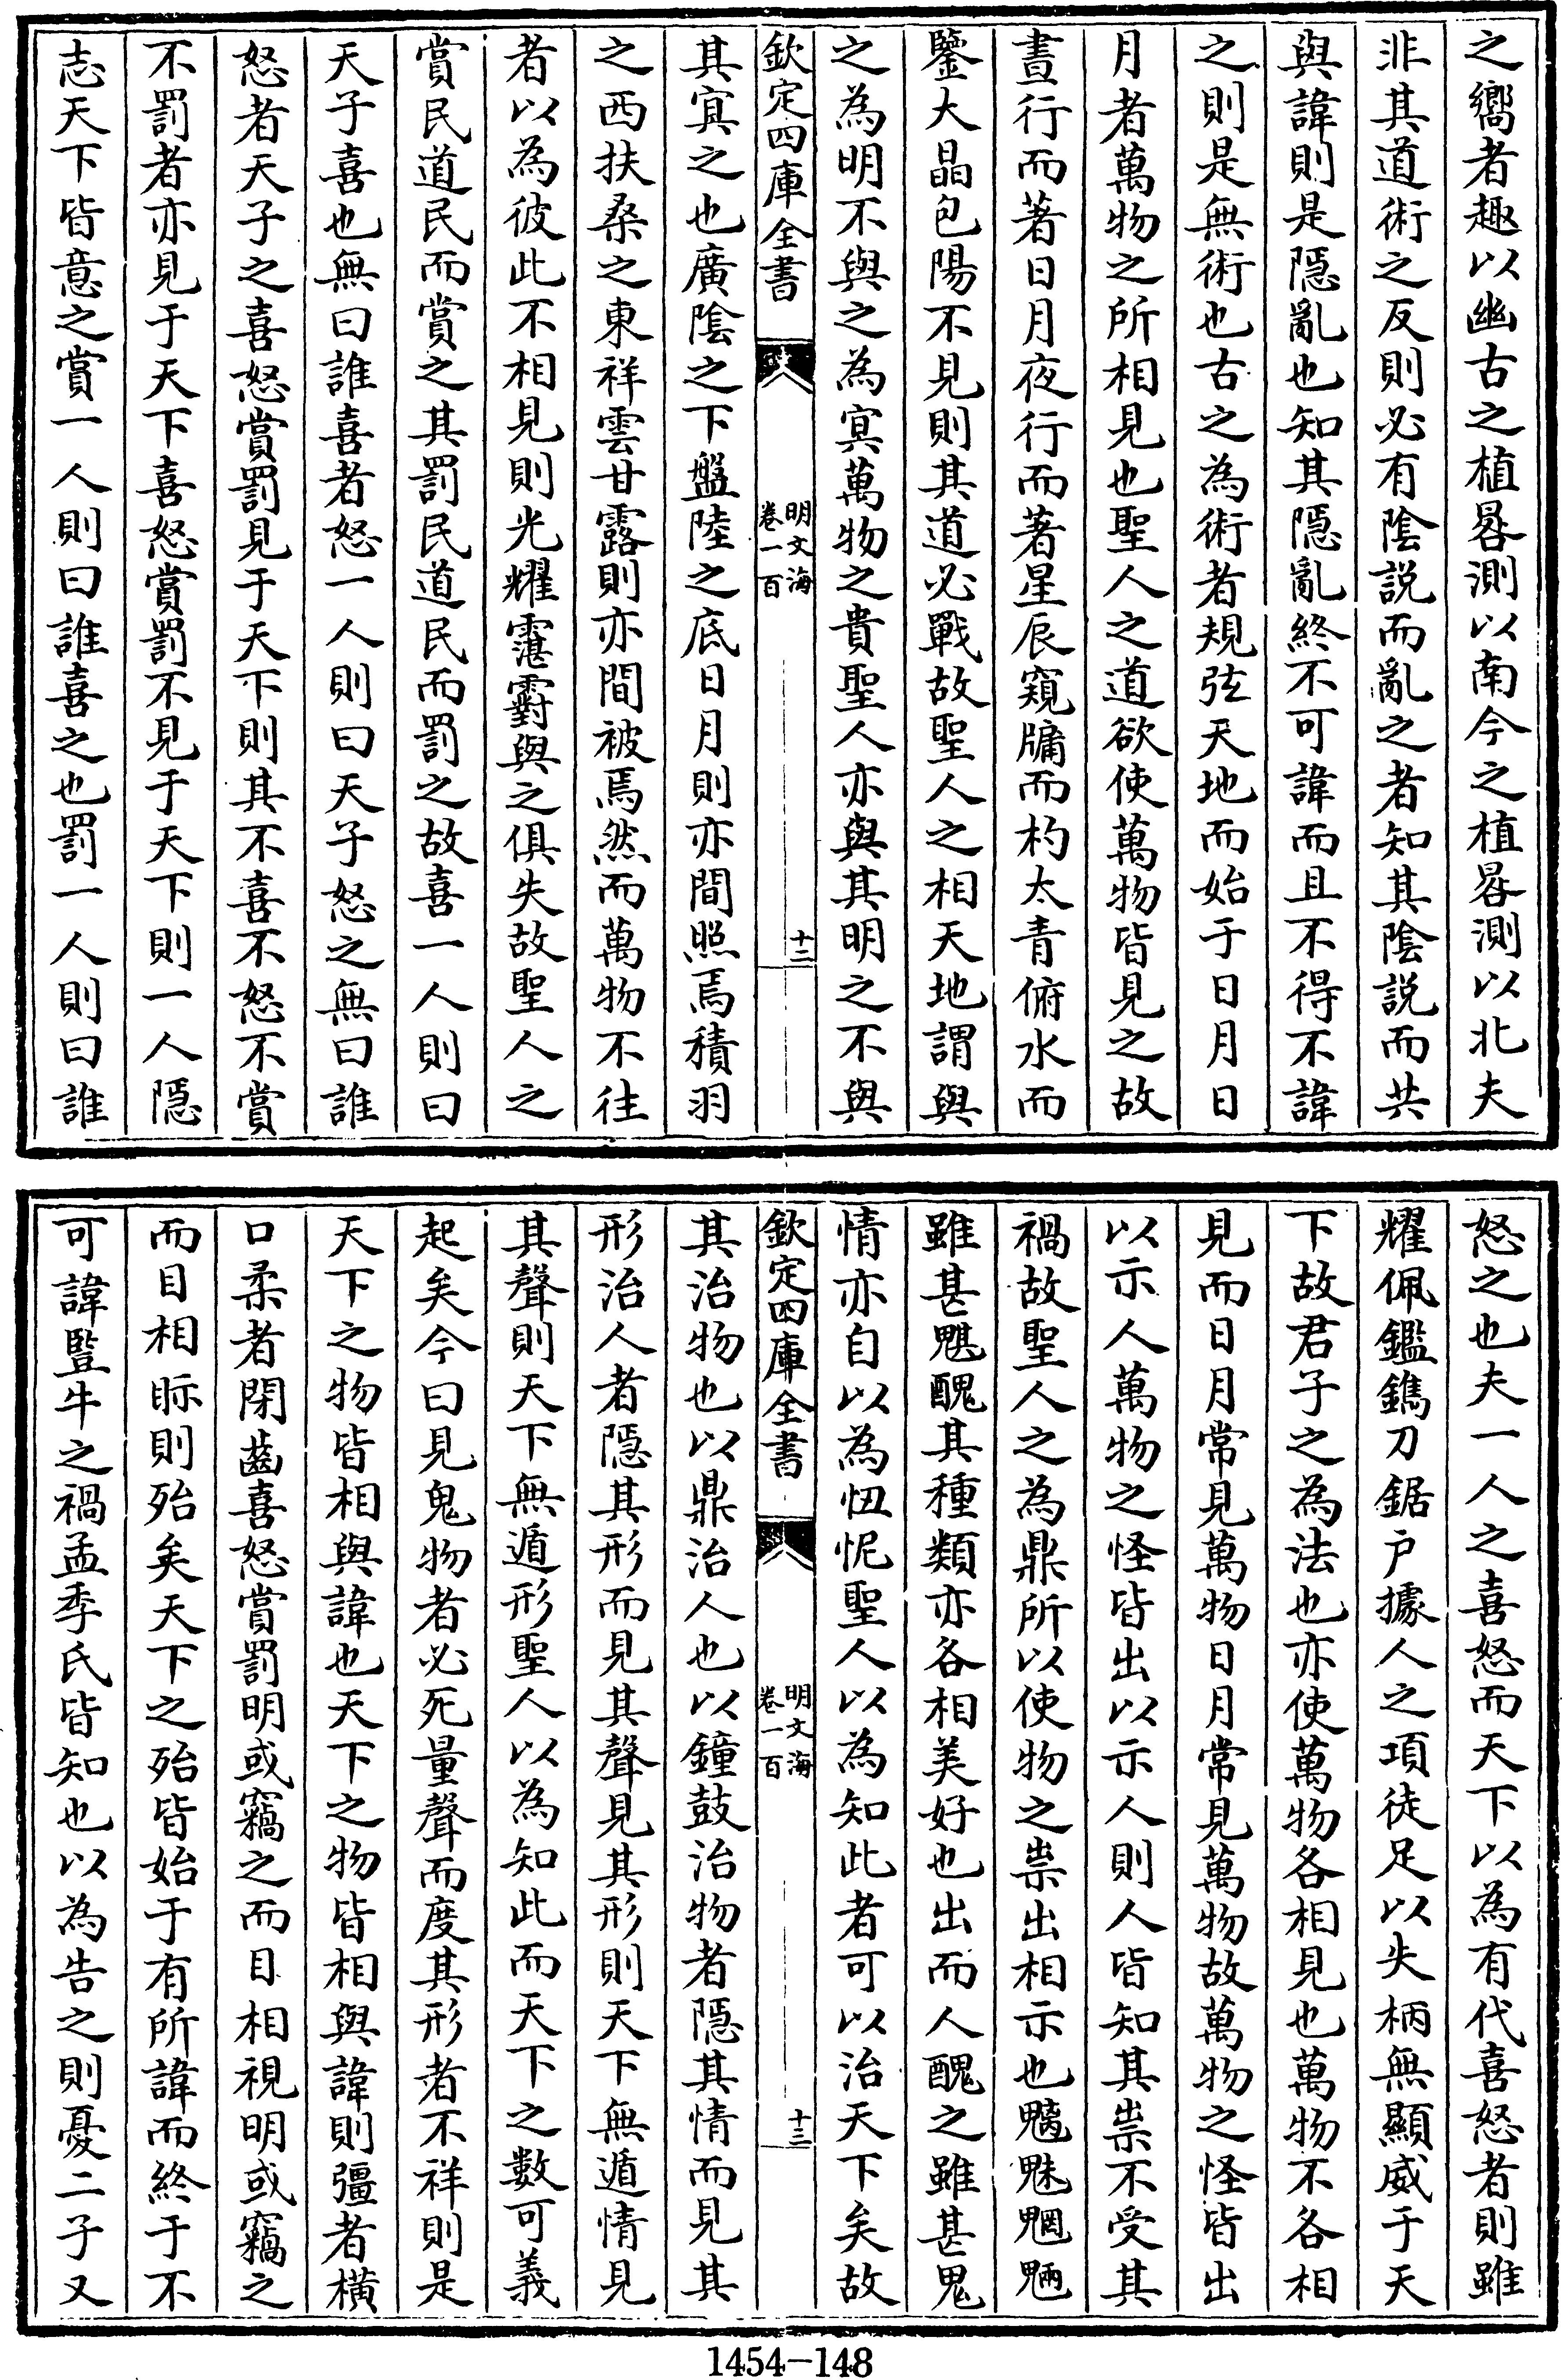 之嚮者趣以幽古之植晷測以南今之植晷測以北夫
非其道術之反則必有陰説而亂之者知其陰説而共
與諱則是隱亂也知其隱亂終不可諱而且不得不諱
之則是無術也古之為術者規弦天地而始于日月日
月者萬物之所相見也聖人之道欲使萬物皆見之故
晝行而著日月夜行而著星辰窺牖而杓太青俯水而
鑒大晶包陽不見則其道必戰故聖人之相天地謂與
之為明不與之為㝠萬物之貴聖人亦與其明之不與
欽定四庫全書
明文海
卷一百
十二
其㝠之也廣陰之下盤陸之底日月則亦間照焉積羽
之西扶桑之東祥雲甘露則亦間被焉然而萬物不往
者以為彼此不相見則光耀霮䨴與之俱失故聖人之
賞民道民而賞之其罰民道民而罰之故喜一人則曰
天子喜也無曰誰喜者怒一人則曰天子怒之無曰誰
怒者天子之喜怒賞罰見于天下則其不喜不怒不賞
不罰者亦見于天下喜怒賞罰不見于天下則一人隱
志天下皆意之賞一人則曰誰喜之也罰一人則曰誰
怒之也夫一人之喜怒而天下以為有代喜怒者則雖
耀佩鑑鐫刀鋸户據人之項徒足以失柄無顯威于天
下故君子之為法也亦使萬物各相見也萬物不各相
見而日月常見萬物日月常見萬物故萬物之怪皆出
以示人萬物之怪皆出以示人則人皆知其祟不受其
禍故聖人之為鼎所以使物之祟出相示也魑魅魍魎
雖甚䰡醜其種類亦各相美好也出而人醜之雖甚鬼
情亦自以為忸怩聖人以為知此者可以治天下矣故
欽定四庫全書
明文海
卷一百
十三
其治物也以鼎治人也以鐘鼓治物者隱其情而見其
形治人者隱其形而見其聲見其形則天下無遁情見
其聲則天下無遁形聖人以為知此而天下之數可義
起矣今曰見鬼物者必死量聲而度其形者不祥則是
天下之物皆相與諱也天下之物皆相與諱則彊者橫
口柔者閉齒喜怒賞罰明或竊之而目相視明或竊之
而目相眎則殆矣天下之殆皆始于有所諱而終于不
可諱豎牛之禍孟季氏皆知也以為告之則憂二子又
1454-148